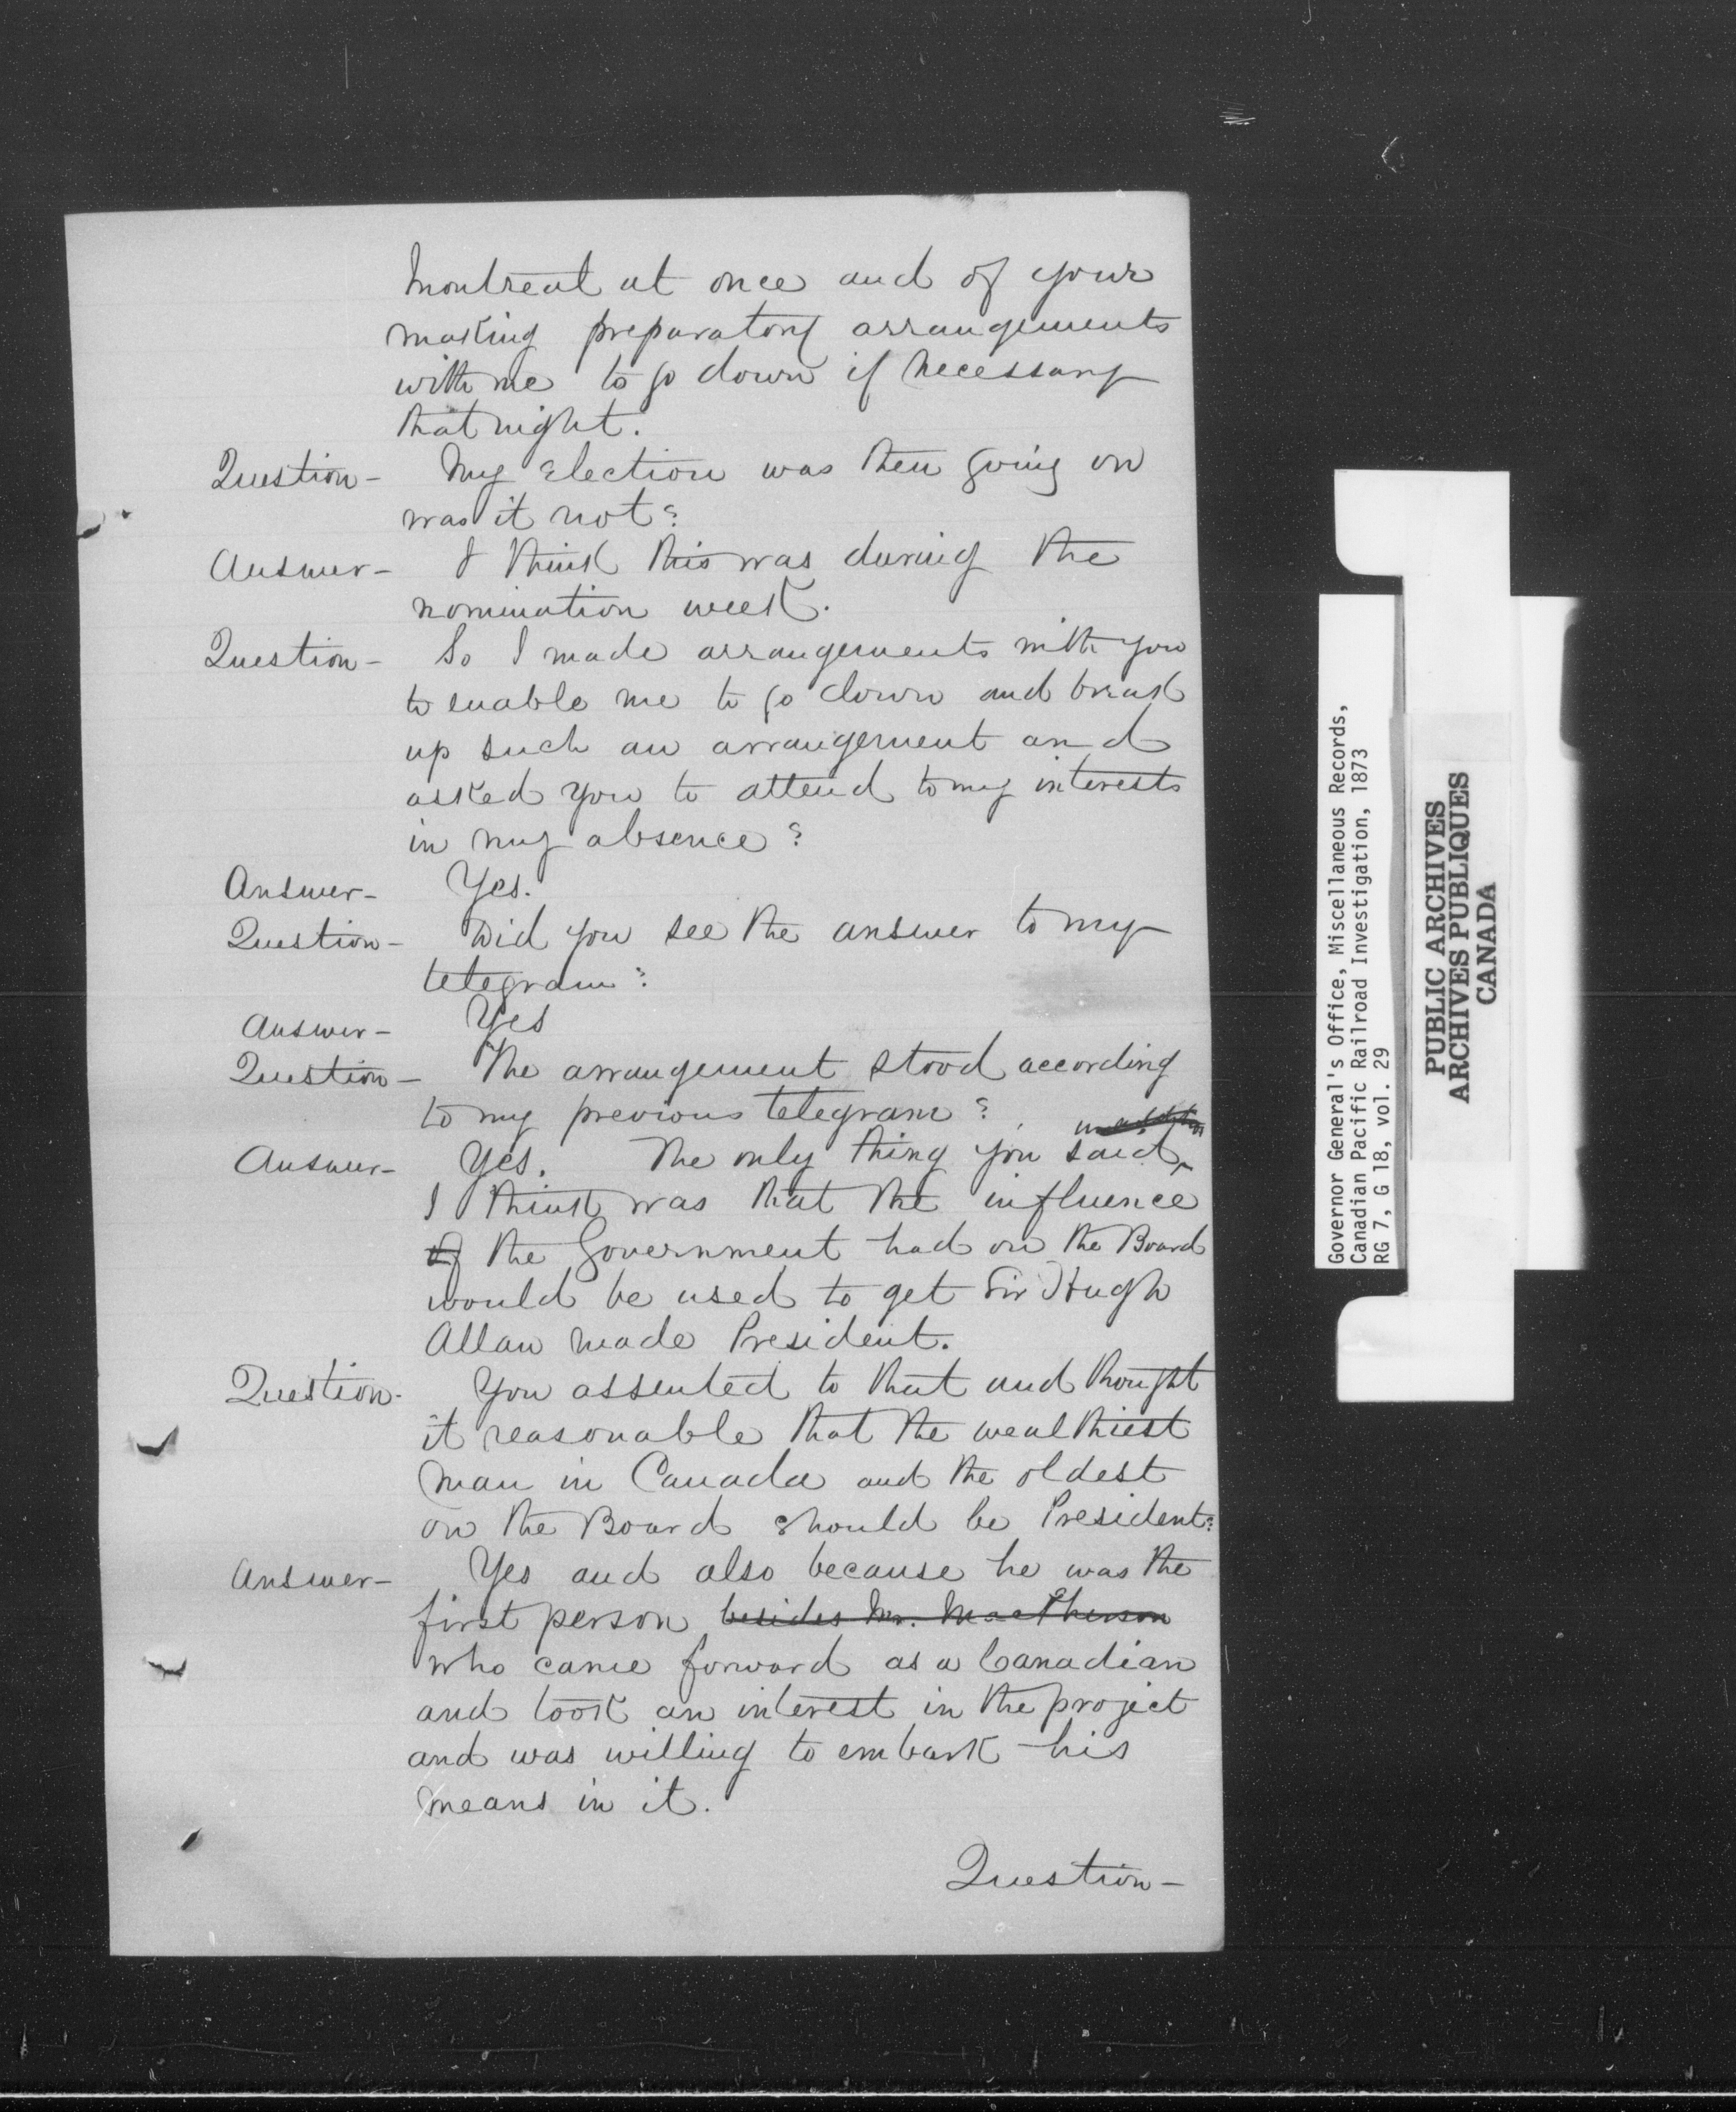 Montreal at once and of your
making preparatory arrangements
with me to go down if necessary
that night.
Question - My election was then going on
was it not?
Answer - I think this was during the
nomination week.
Question - So I made arrangements with you
to enable me to go down and break
up such an arrangement and
asked you to attend to my interests
in my absence?
Answer - Yes.
Question - Did you see the answer to my
telegram?
Answer - Yes
Question - The arrangement stood according
to my previous telegram?
Answer - Yes. The only thing you said,
I think was that the influence
of the Government had on the Board
would be used to get Sir Hugh
Allan made President.
Question - You assented to that and thought
it reasonable that the wealthiest
man in Canada and the oldest
on the Board should be President?
Answer - Yes and also because he was the
first person besides Mr. MacPherson
who came forward as a Canadian
and took an interest in the project
and was willing to embark his
means in it.
Question -
Governor General's Office, Miscellaneous Records,
Canadian Pacific Railroad Investigation, 1873
RG 7, G 18, vol. 29
PUBLIC ARCHIVES
ARCHIVES PUBLIQUES
CANADA